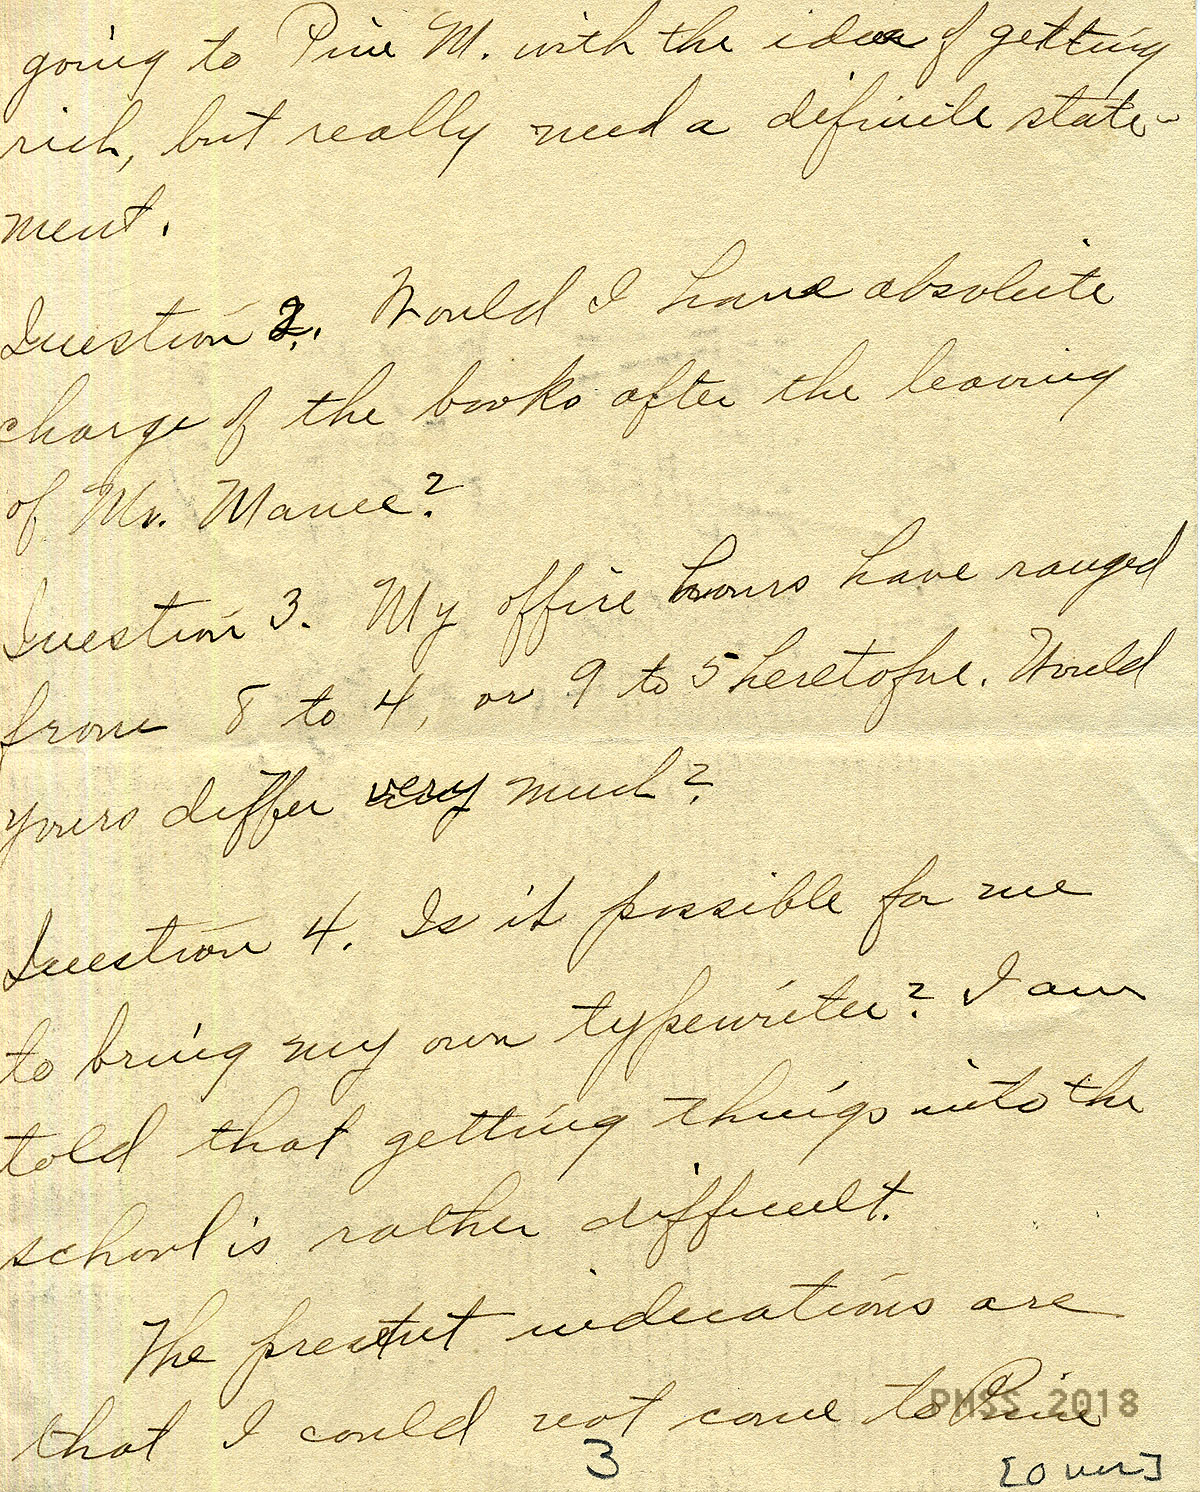 going to Pine M. with the idea of getting
rich, but really need a definite state-
ment.
Question 2. Would I have absolute
charge of the books after the leaving
of Mr. Manel?
Question 3. My office hours have ranged
from 8 to 4, or 9 to 5 heretofore. Would
yours differ very much?
Question 4. Is it possible for me
to bring my own typewriter? I am
told that getting things into the
school is rather difficult.
The present indications are
that I could not come to Pine
PMSS 2018
3
[over]